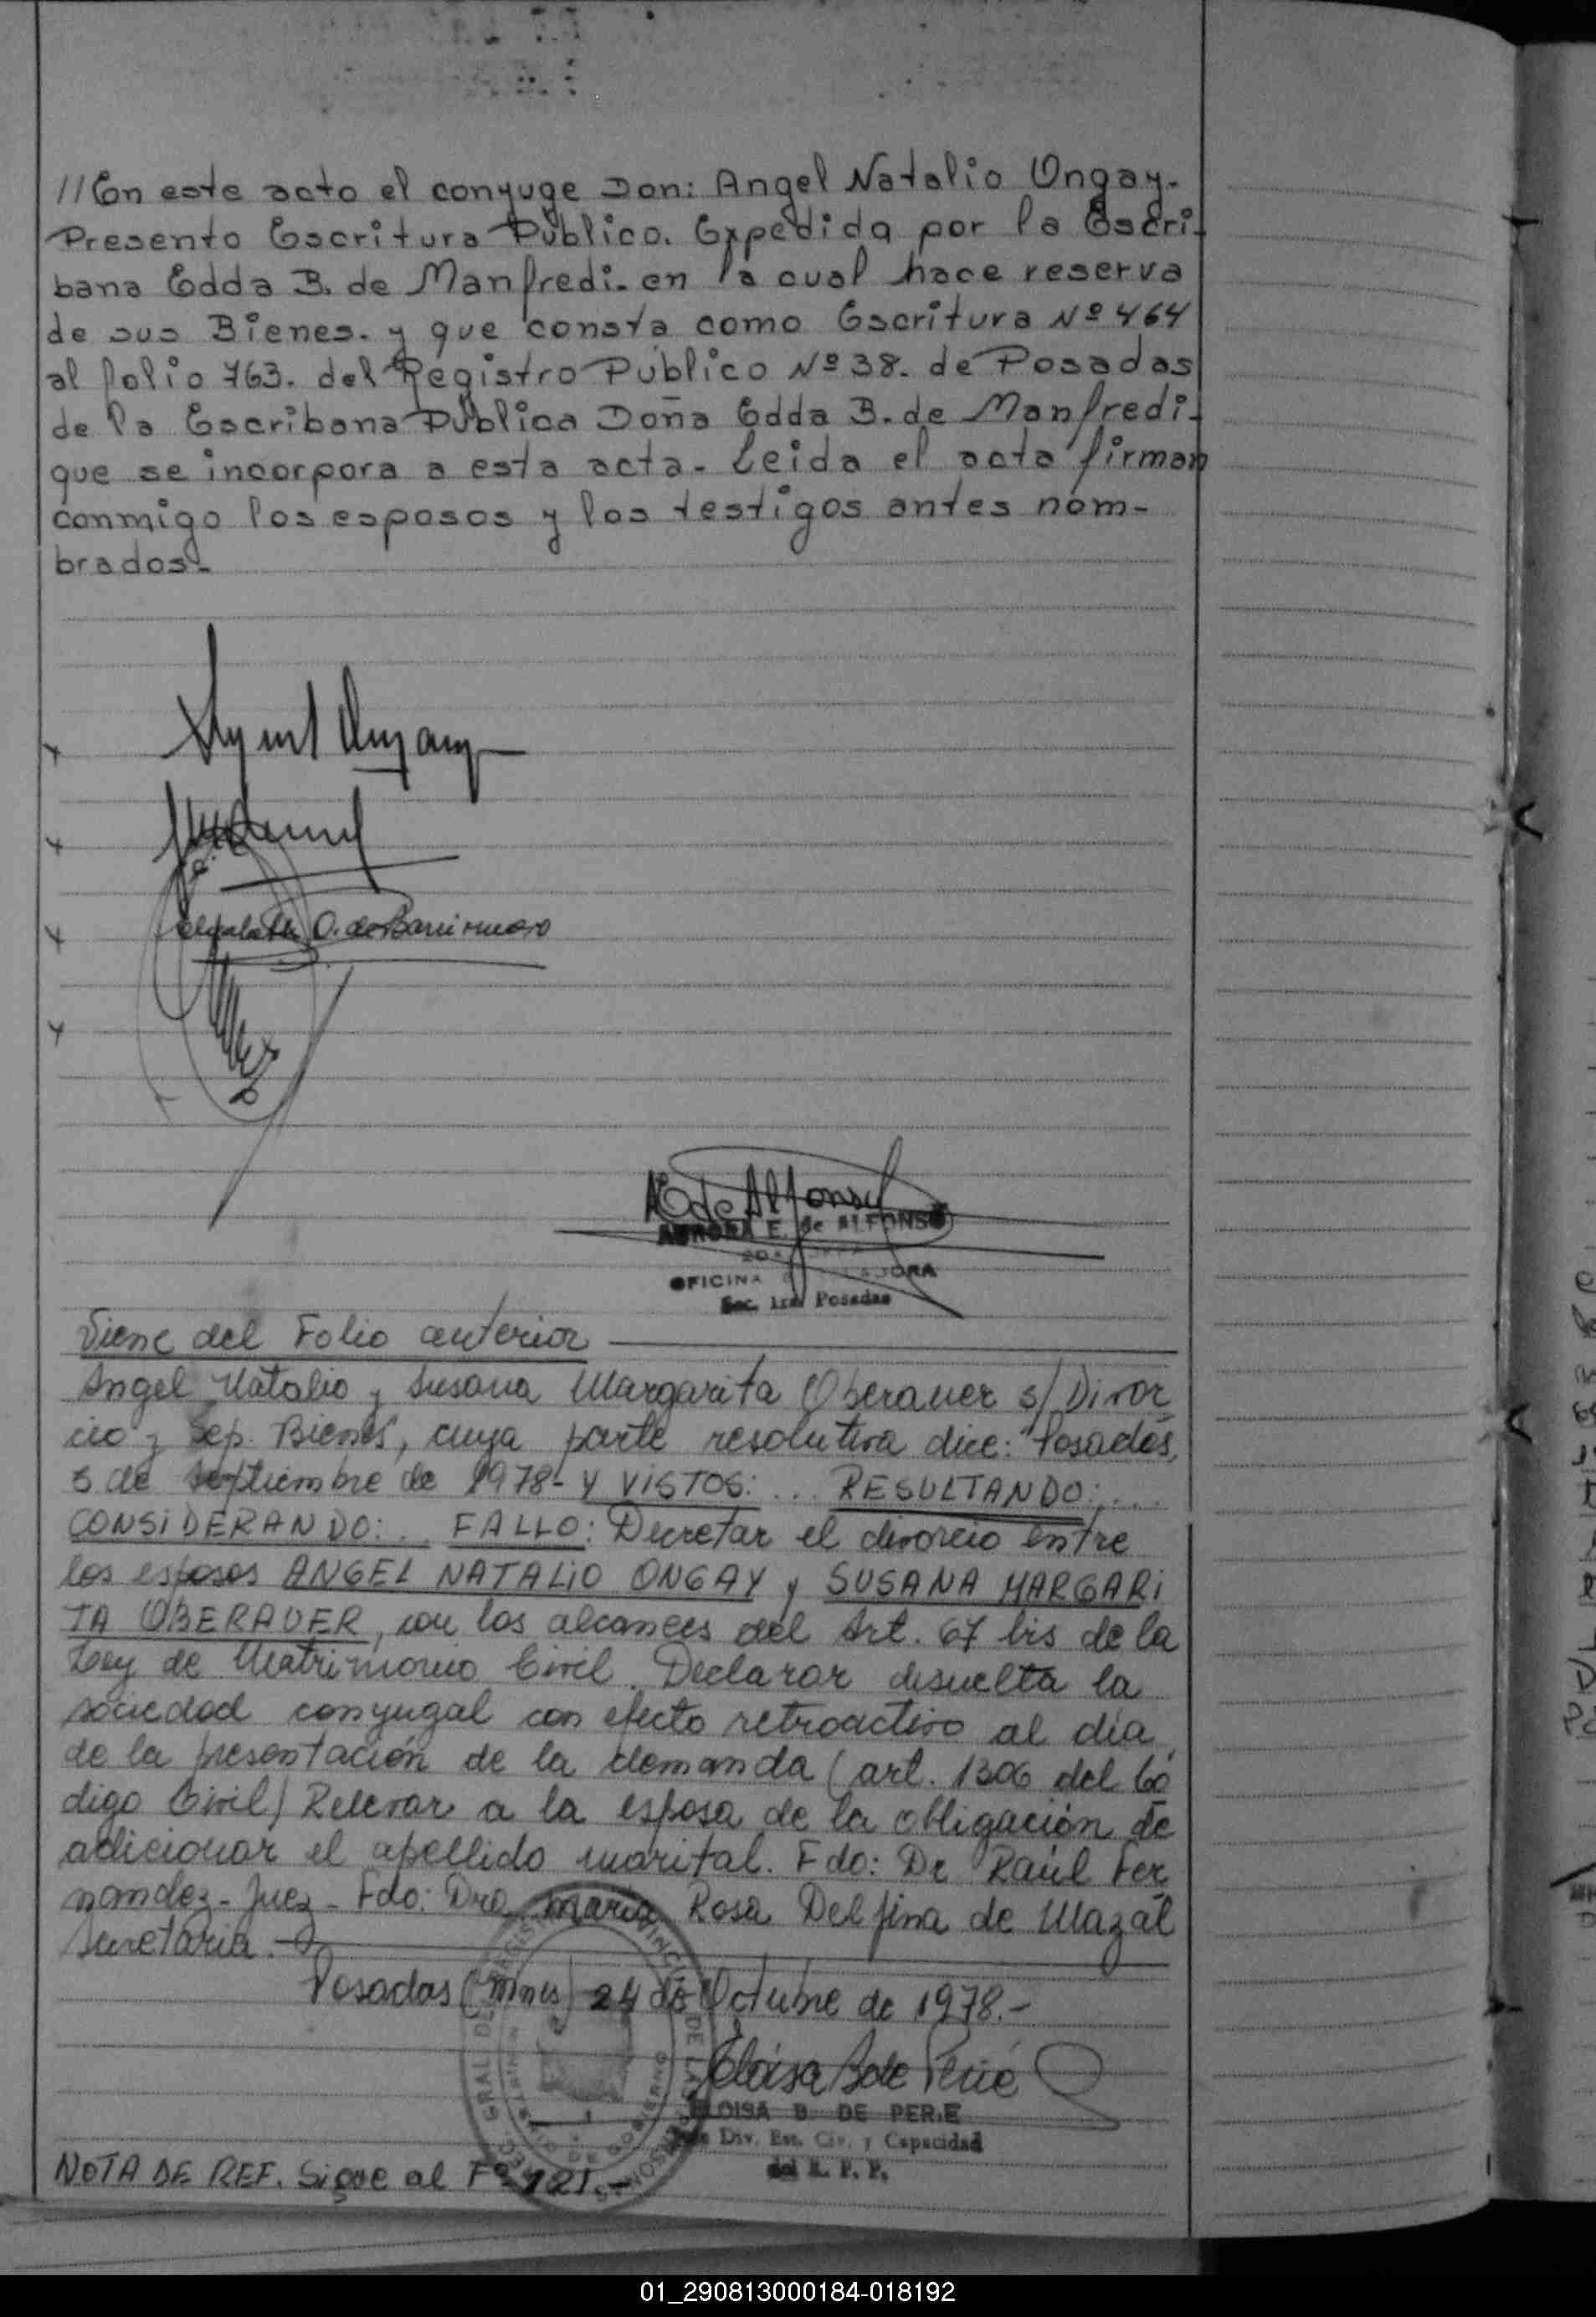 //En este acto el conyuge Don: Angel Natalio Ongay-
Presento Escritura Publico. Expedida por la Escri-
bana Edda B. de Manfredi- en la cual hace reserva
de sus Bienes. y que consta como Escritura Nº 464
al folio 763. del Registro Público Nº 38. de Posadas
de la Escribana Publica Doña Edda B. de Manfredi-
que se incorpora a esta acta- Leida el acta firman
conmigo los esposos y los testigos antes nom-
brados-
A E de Alfonso
AURORA E. de ALFONSO
OFICINA
Sec. 1ra Posadas
Viene del Folio anterior
Angel Natalio y Susana Margarita Oberauer s/ Divor
cio y Sep. Bienes", cuya parte resolutiva dice: "Posadas,
5 de Septiembre de 1978- Y VISTOS: ... RESULTANDO: ...
CONSIDERANDO: .. FALLO: Decretar el divorcio entre
los esposos ANGEL NATALIO ONGAY y SUSANA MARGARI
TA OBERAUER, con los alcances del Art. 67 bis de la
Ley de Matrimonio Civil. Declarar disuelta la
sociedad conyugal con efecto retroactivo al día
de la presentación de la demanda (art. 1306 del Có
digo Civil) Relevar a la esposa de la obligación de
adicionar el apellido marital. Fdo: Dr Raúl Fer
nandez- Juez- Fdo: Dra María Rosa Delfina de Mazal
Secretaria.
Posadas (Mnes) 24 de Octubre de 1978.-
Eloisa B de Perié
ELOISA B. DE PERIE
Div. Est. Civ. y Capacidad
del R. P. P.
NOTA DE REF. Sigue al Fº 121.-
01_290813000184-018192